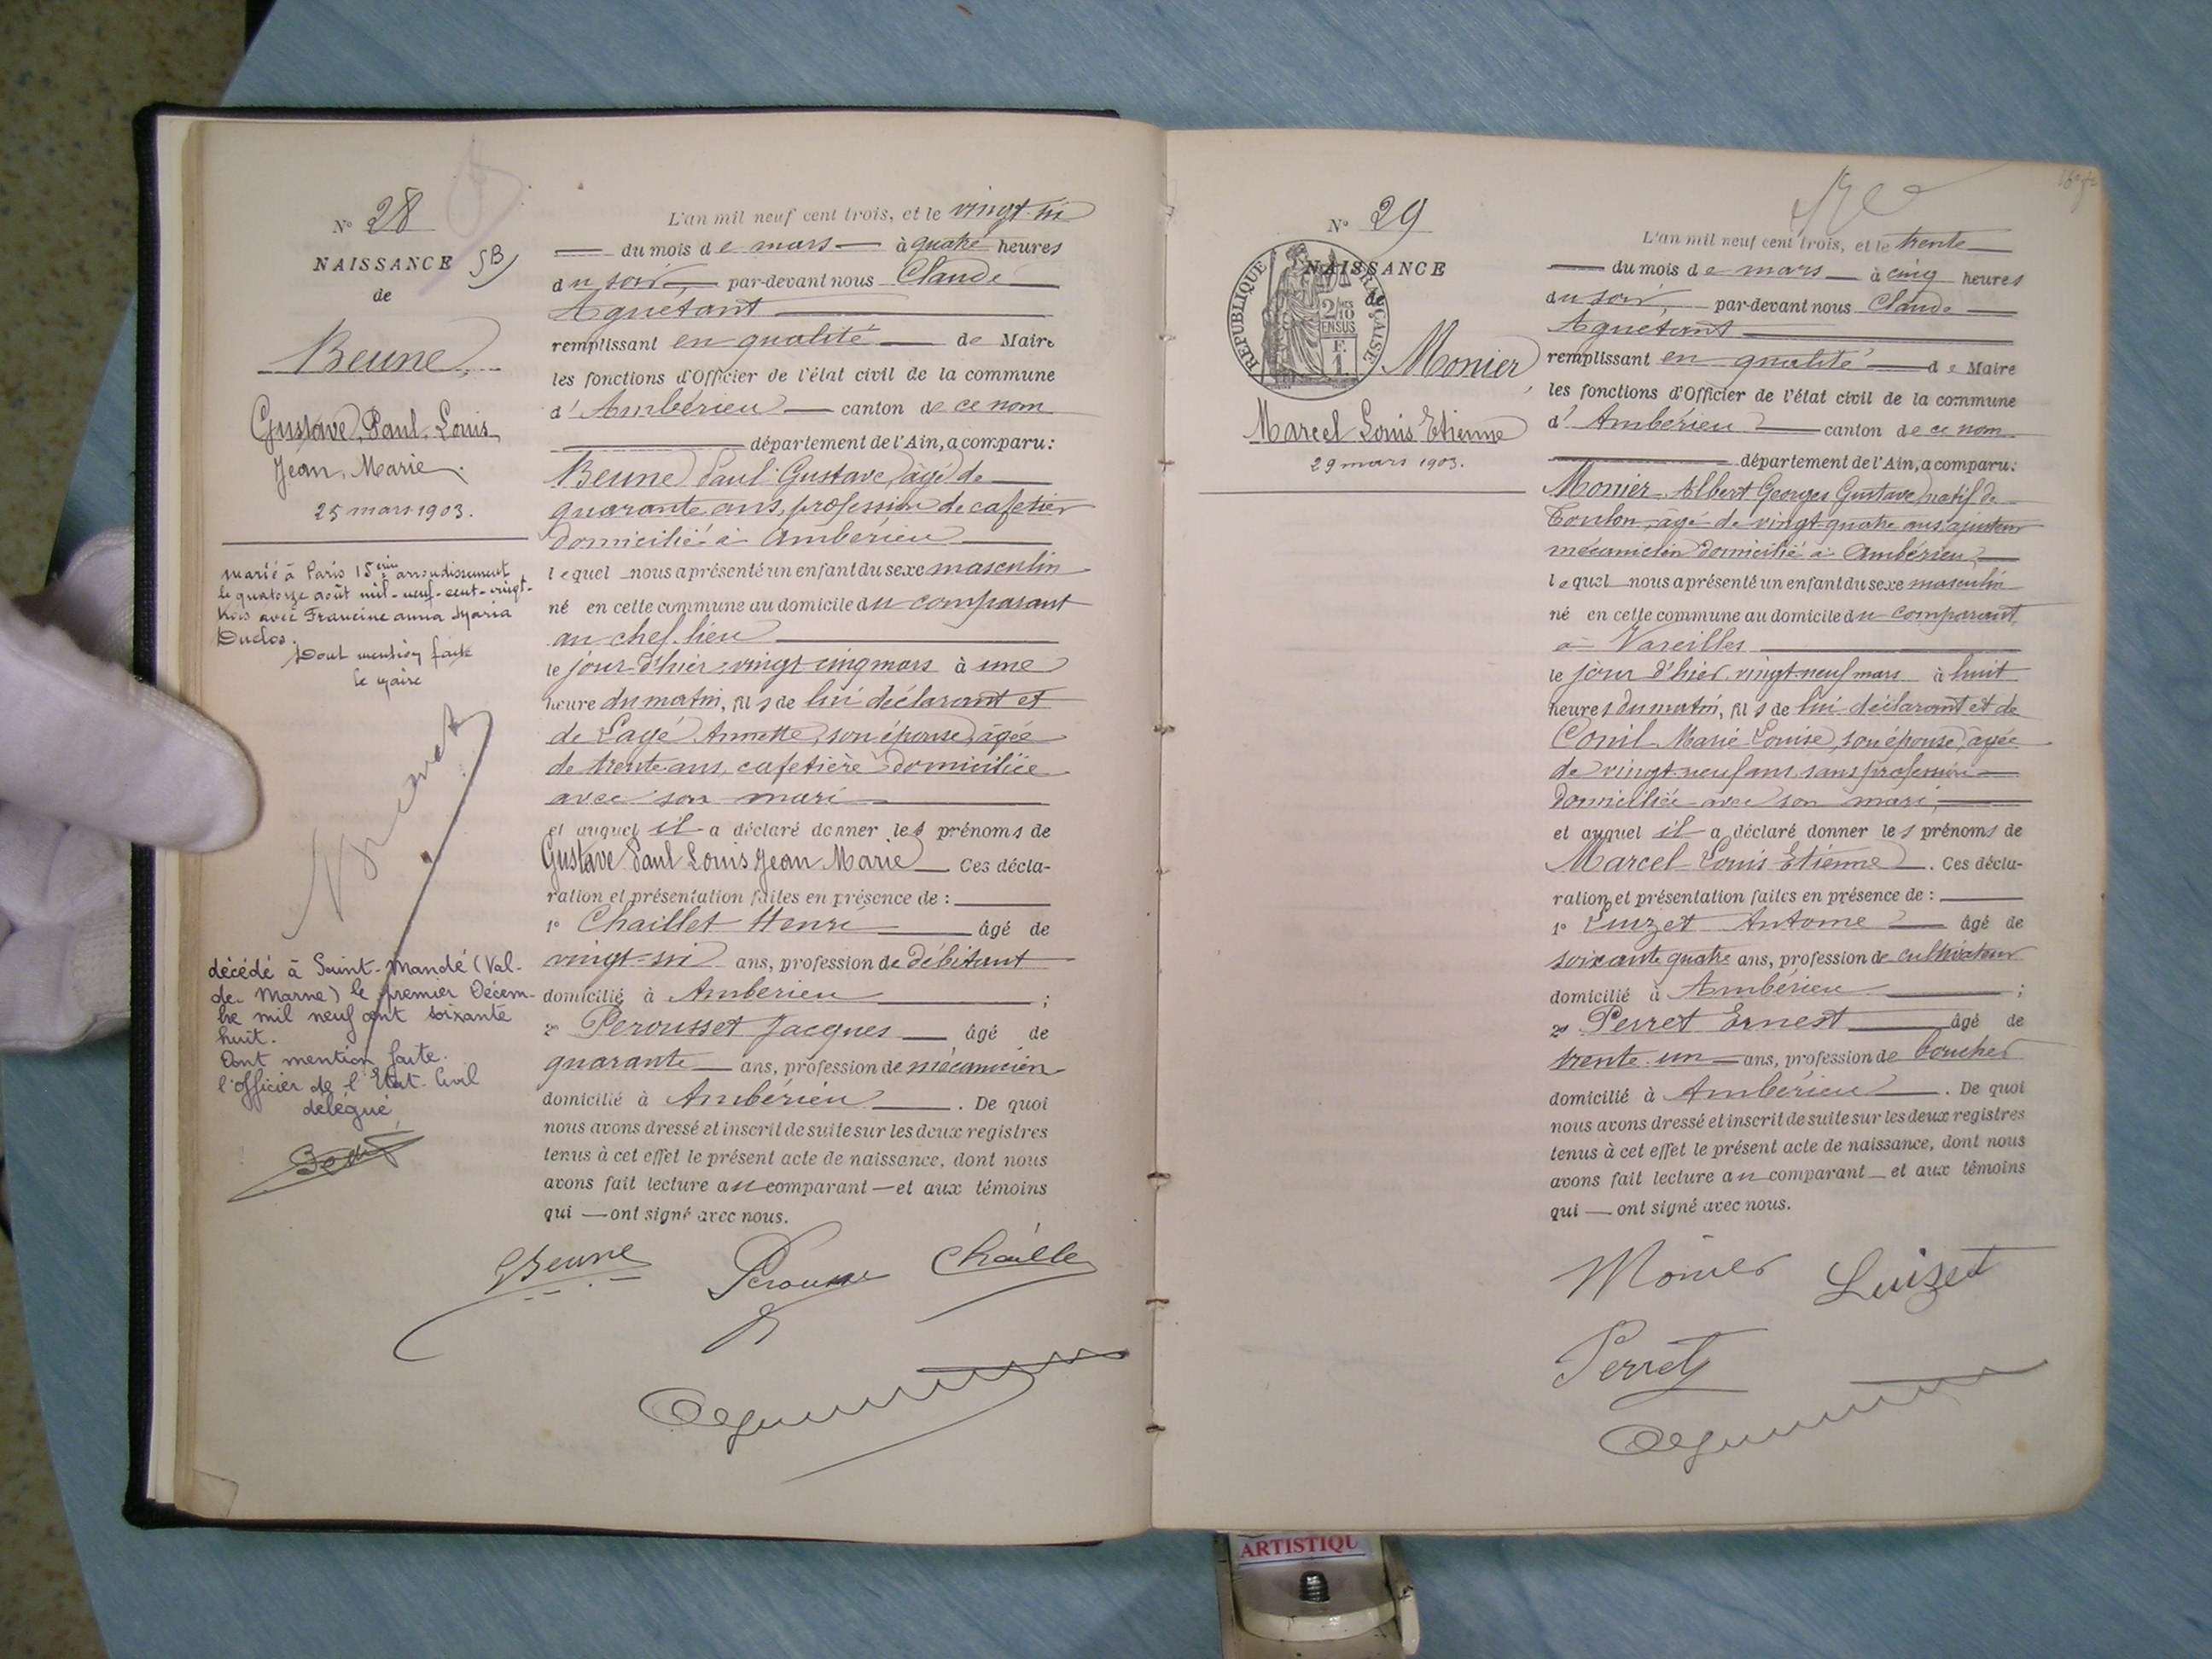 N° 28
NAISSANCE
de
Beune,
Gustave, Paul, Louis,
Jean, Marie.
25 mars 1903.
marié à Paris 15ème arrondissement
le quatorze août mil-neuf-cent-vingt-
trois avec Francine anna Maria
Duclos.
Dont mention faite
le maire
décédé à Saint-Mandé (Val-
de Marne) le premier Décem-
bre mil neuf cent soixante
huit.
Dont mention faite.
l'officier de l'Etat-Civil
délégué
L'an mil neuf cent trois, et le vingt-six
du mois de mars à quatre heures
du soir, par-devant nous Claude
Aguétant
remplissant en qualité de Maire
les fonctions d'Officier de l'état civil de la commune
d'Ambérieu canton de ce nom
département de l'Ain, a comparu:
Beune Paul Gustave, âgé de
quarante ans, profession de cafetier
domicilié à Ambérieu
lequel nous a présenté un enfant du sexe masculin
né en cette commune au domicile du comparant
au chef-lieu
le jour d'hier vingt-cinq mars à une
heure du matin, fils de lui déclarant et
de Layé Annette, son épouse, âgée
de trente ans, cafetière domiciliée
avec son mari
et auquel il a déclaré donner les prénoms de
Gustave Paul Louis Jean Marie Ces décla-
ration et présentation faites en présence de :
1° Chaillet Henri âgé de
vingt-six ans, profession de débitant
domicilié à Ambérieu ;
2° Perousset Jacques âgé de
quarante ans, profession de mécanicien
domicilié à Ambérieu . De quoi
nous avons dressé et inscrit de suite sur les deux registres
tenus à cet effet le présent acte de naissance, dont nous
avons fait lecture au comparant et aux témoins
qui ont signé avec nous.
Beune Perousse Chaille
N° 29
NAISSANCE
de
RÉPUBLIQUE FRANÇAISE
2/10
EN SUS
F.
1.
Monier
Marcel Louis Etienne
29 mars 1903.
L'an mil neuf cent trois, et le trente
du mois de mars à cinq heures
du soir par-devant nous Claude
Aguétant
remplissant en qualité de Maire
les fonctions d'Officier de l'état civil de la commune
d'Ambérieu canton de ce nom
département de l'Ain, a comparu:
Monier Albert Georges Gustave, natif de
Toulon, âgé de vingt-quatre ans, ajusteur
mécanicien domicilié à Ambérieu,
lequel nous a présenté un enfant du sexe masculin
né en cette commune au domicile du comparant,
à Vareilles
le jour d'hier vingt-neuf mars à huit
heures du matin, fils de lui déclarant et de
Conil Marie Louise, son épouse, âgée
de vingt-neuf ans, sans profession
domiciliée avec son mari,
et auquel il a déclaré donner les prénoms de
Marcel Louis Etienne . Ces décla-
ration et présentation faites en présence de :
1° Luizet Antoine âgé de
soixante quatre ans, profession de cultivateur
domicilié à Ambérieu ;
2° Perret Ernest âgé de
trente-un ans, profession de boucher
domicilié à Ambérieu . De quoi
nous avons dressé et inscrit de suite sur les deux registres
tenus à cet effet le présent acte de naissance, dont nous
avons fait lecture au comparant et aux témoins
qui ont signé avec nous.
Monier Luizet
Perret
ARTISTIQU